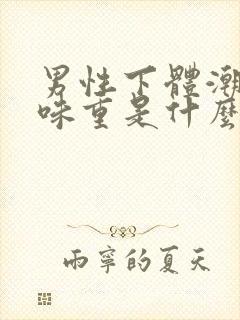 男性下體潮
味重是什麼
雨寧的夏天